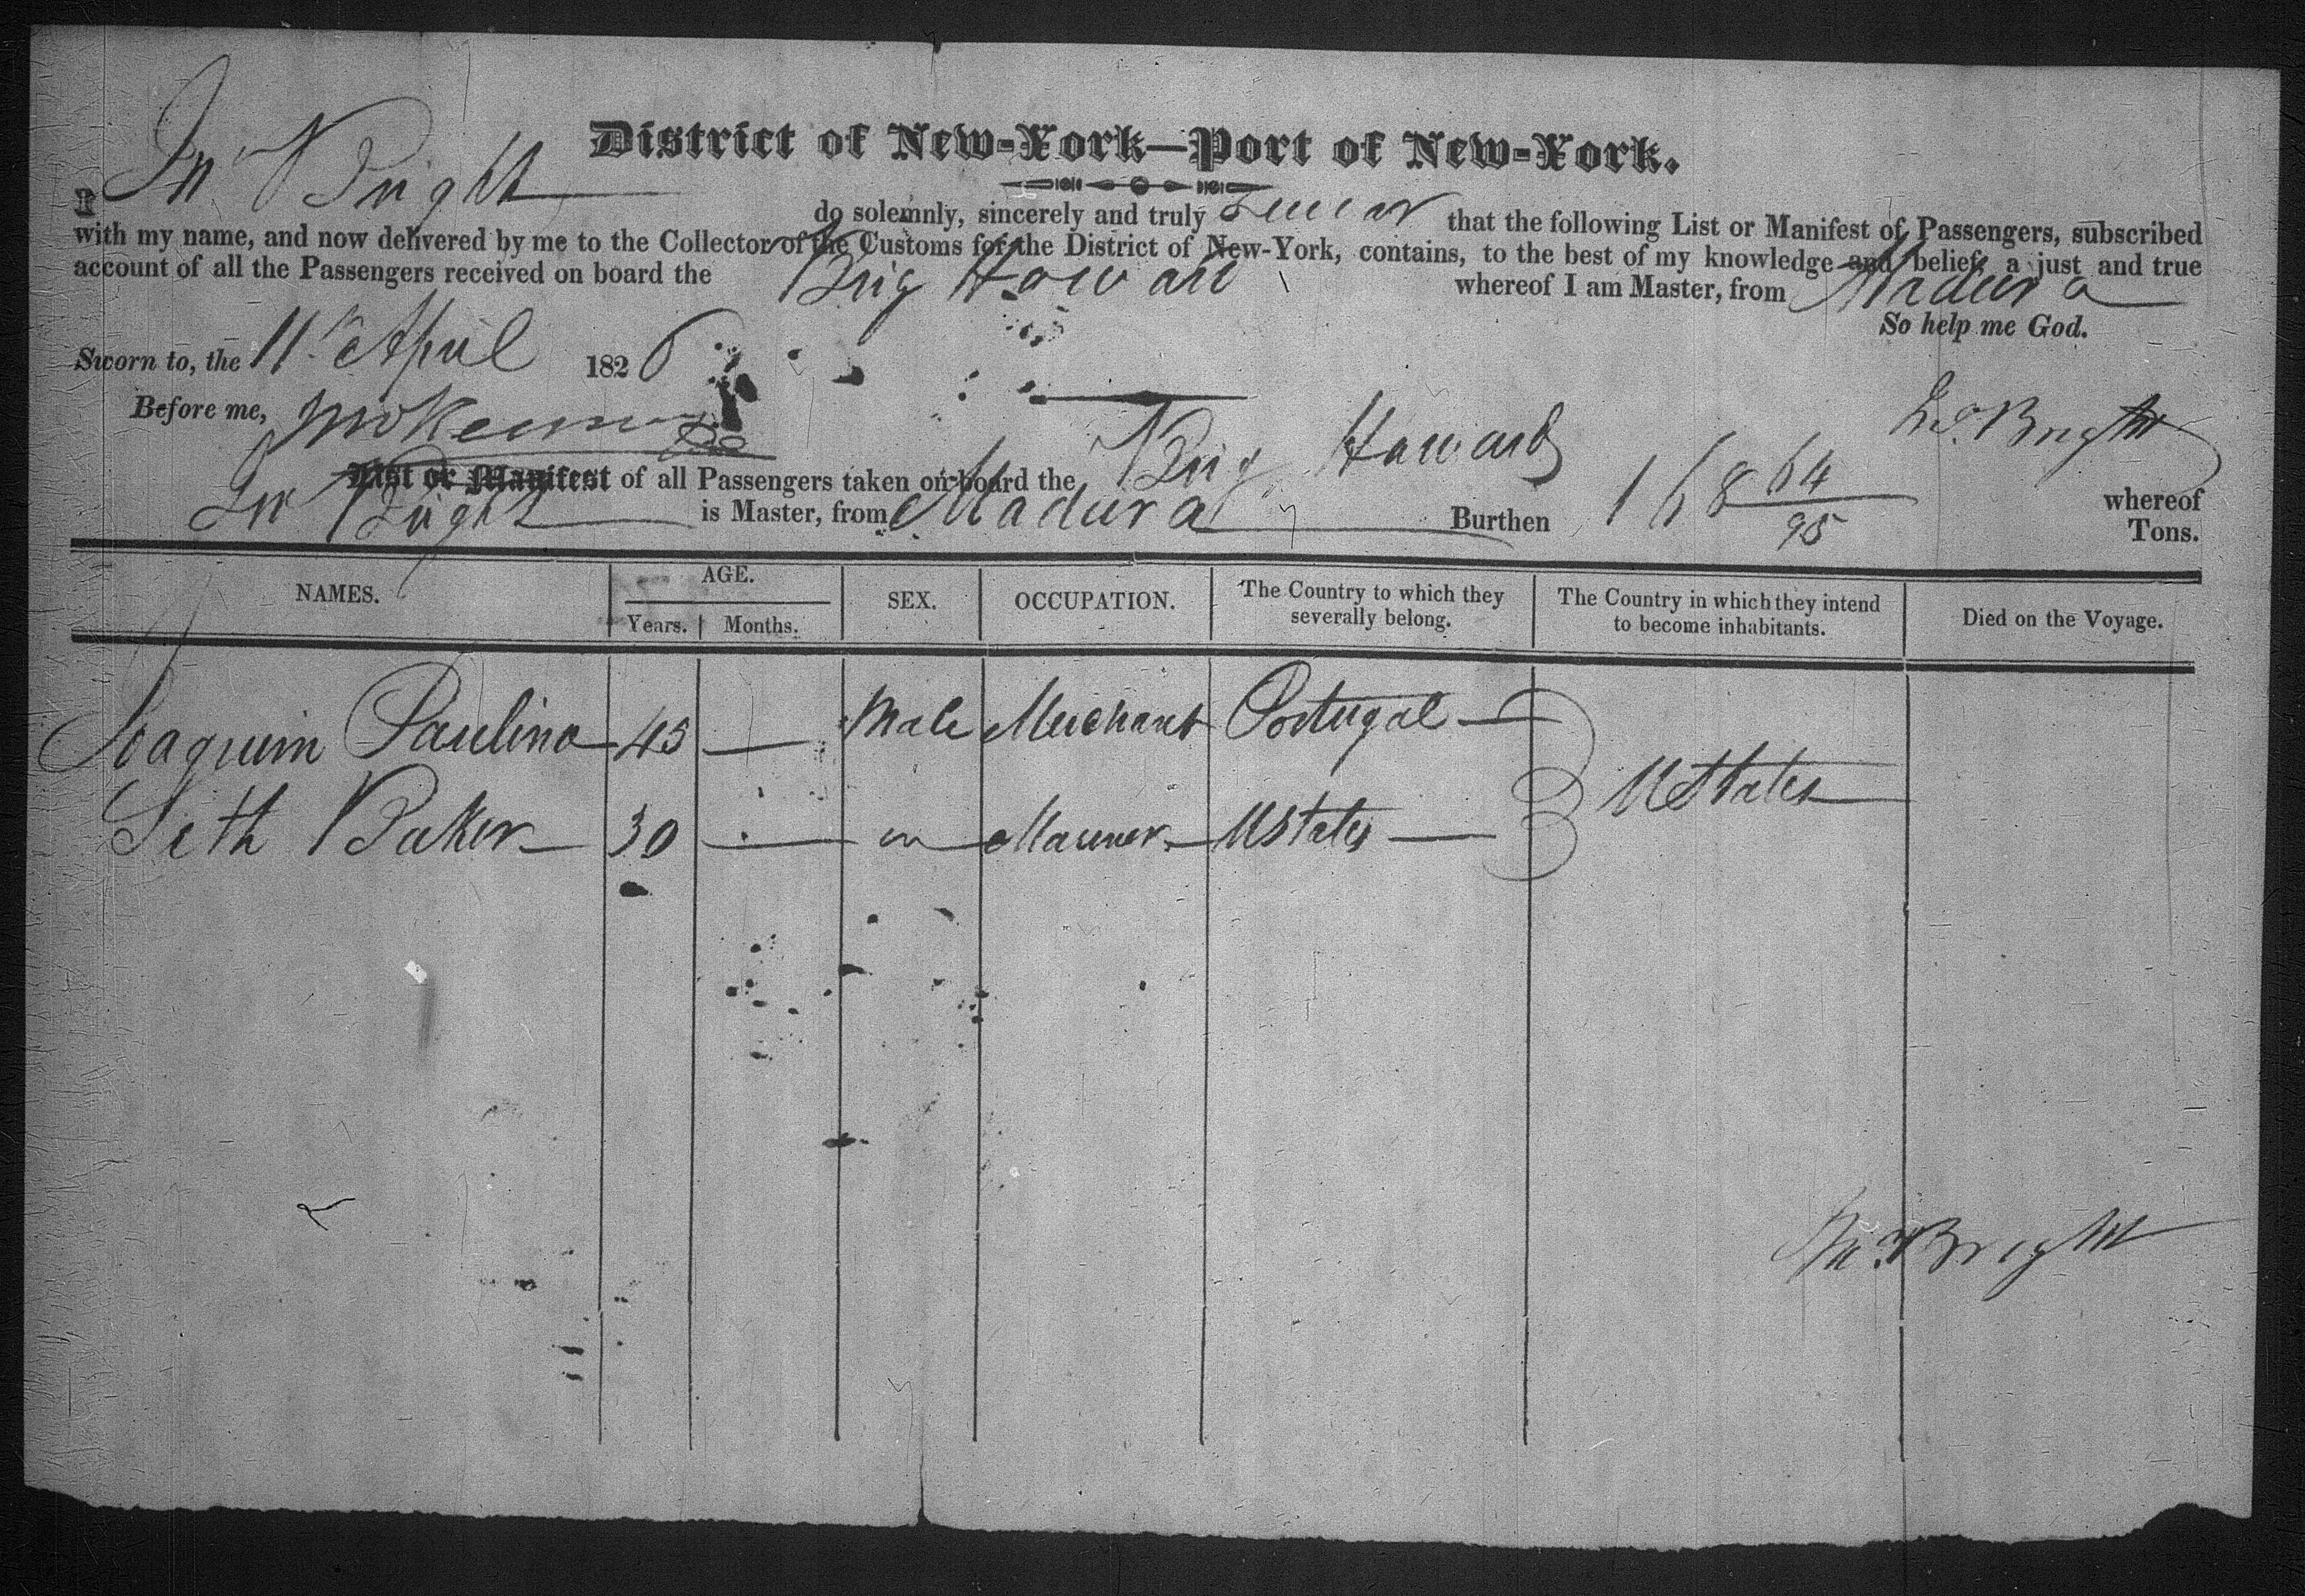 District of New-York—Port of New-York.
I Jn° Bright do solemnly, sincerely and truly Swear that the following List or Manifest of Passengers, subscribed
with my name, and now delivered by me to the Collector of the Customs for the District of New-York, contains, to the best of my knowledge and belief, a just and true
account of all the Passengers received on board the Brig Howard whereof I am Master, from Madeira
So help me God.
Sworn to, the 11th April 1826
Before me,
Bright
List or Manifest of all Passengers taken on board the Brig Howard 168 64/95 whereof
Jn° Bright is Master, from Madeira Burthen Tons.
NAMES. AGE. SEX. OCCUPATION. The Country to which they severally belong. The Country in which they intend to become inhabitants. Died on the Voyage.
Years. Months.
Joaquim Paulino 45 — Male Merchant Portugal —
UStates
Seth Baker 30 — Mariner UStates —
Jn° Bright